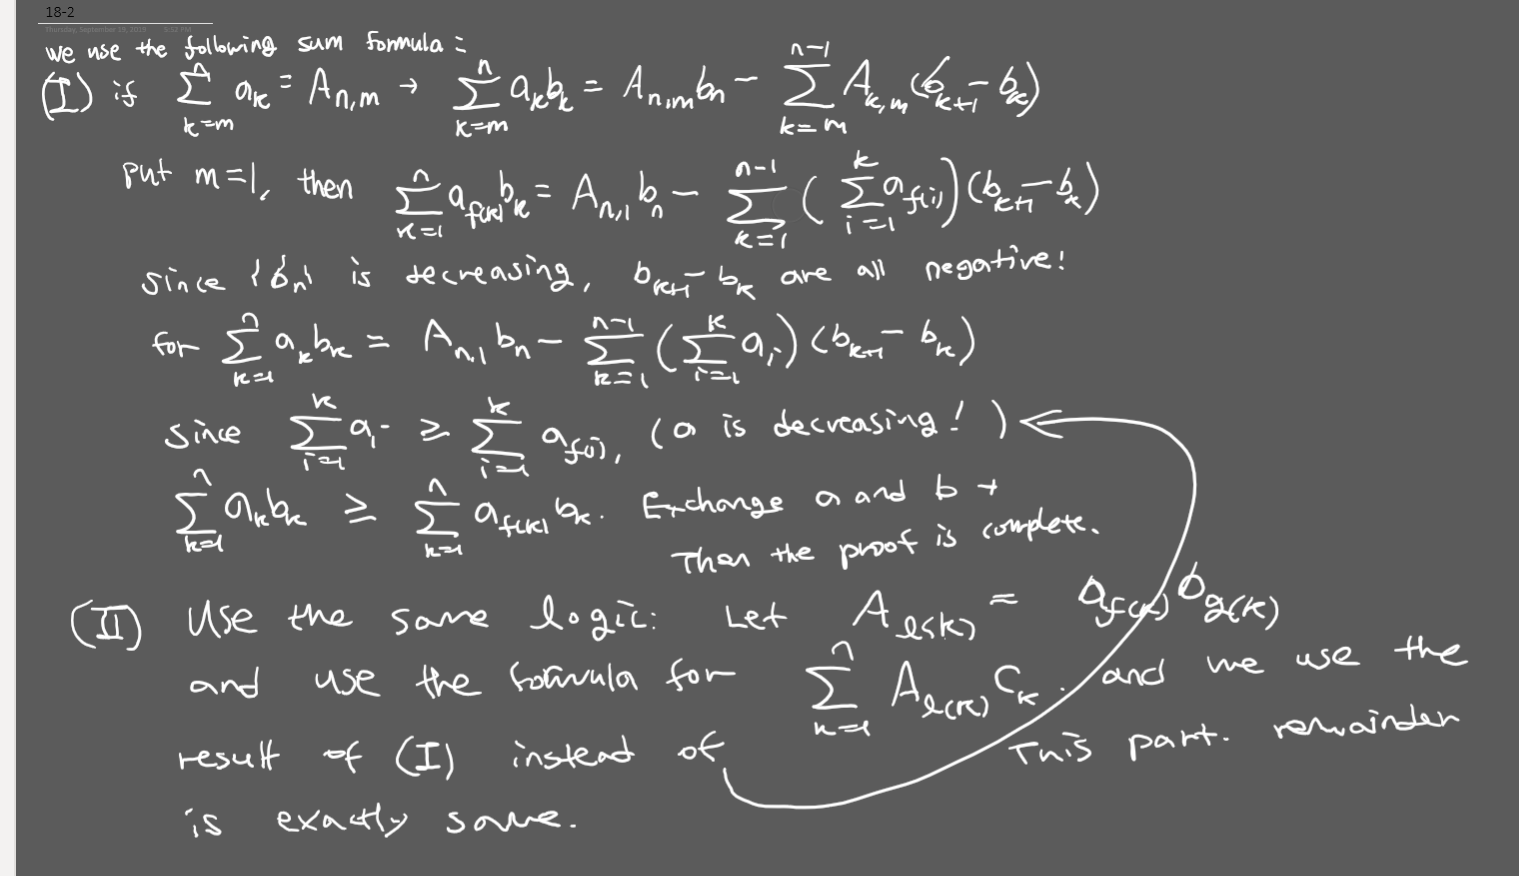 18-2
Thursday, September 19, 2019 5:52 PM
we use the following sum formula:
(I) if \sum_{k=m}^{n} a_k = A_{n,m} → \sum_{k=m}^{n} a_k b_k = A_{n,m} b_n - \sum_{k=m}^{n-1} A_{k,m} (b_{k+1} - b_k)
Put m=1, then \sum_{k=1}^{n} a_{f(k)} b_k = A_{n,1} b_n - \sum_{k=1}^{n-1} ( \sum_{i=1}^{k} a_{f(i)} ) (b_{k+1} - b_k)
since {b_n} is decreasing, b_{k+1} - b_k are all negative!
for \sum_{k=1}^{n} a_k b_k = A_{n,1} b_n - \sum_{k=1}^{n-1} ( \sum_{i=1}^{k} a_i ) (b_{k+1} - b_k)
since \sum_{i=1}^{k} a_i ≥ \sum_{i=1}^{k} a_{f(i)}, (a is decreasing! )
\sum_{k=1}^{n} a_k b_k ≥ \sum_{k=1}^{n} a_{f(k)} b_k. Exchange a and b
Then the proof is complete.
(II) Use the same logic: Let A_{l(k)} = a_{f(k)} b_{g(k)}
and use the formula for \sum_{k=1}^{n} A_{l(k)} C_k. and we use the
result of (I) instead of This part. remainder
is exactly same.